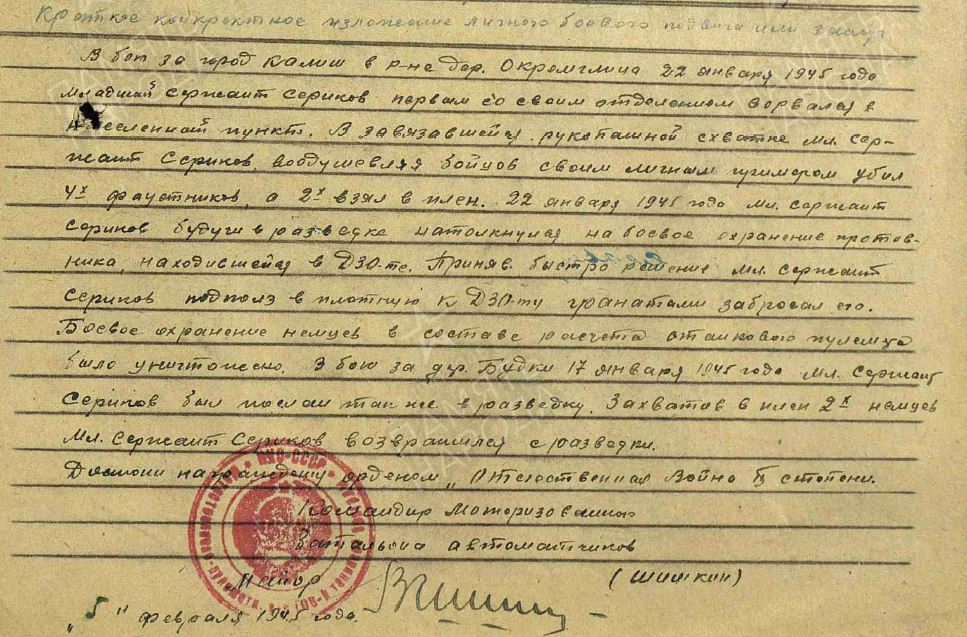 Краткое конкретное изложение личного боевого подвига или заслуг
В бою за город Калиш в р-не дер. Окремглица 22 января 1945 года
младший сержант Сериков первым со своим отделением ворвался в
населенный пункт. В завязавшейся рукопашной схватке мл. сер-
жант Сериков, воодушевляя бойцов своим личным примером убил
4х фаустников, а 2х взял в плен. 22 января 1945 года мл. сержант
Сериков будучи в разведке натолкнулся на боевое охранение против-
ника, находившейся в ДЗО-те. Приняв быстро решение мл. сержант
Сериков подполз в плотную к ДЗО-ту гранатами забросал его.
Боевое охранение немцев в составе расчета станкового пулемета
было уничтожено. В бою за дер. Будки 17 января 1945 года мл. сержант
Сериков был послан так же в разведку. Захватив в плен 2х немцев
мл. сержант Сериков возвратился с разведки.
Достоин награждению орденом „Отечественная Война II степени.
Командир Моторизованного
Батальона автоматчиков
Майор (Шишкин)
„5" февраля 1945 года.
НКО-СССР